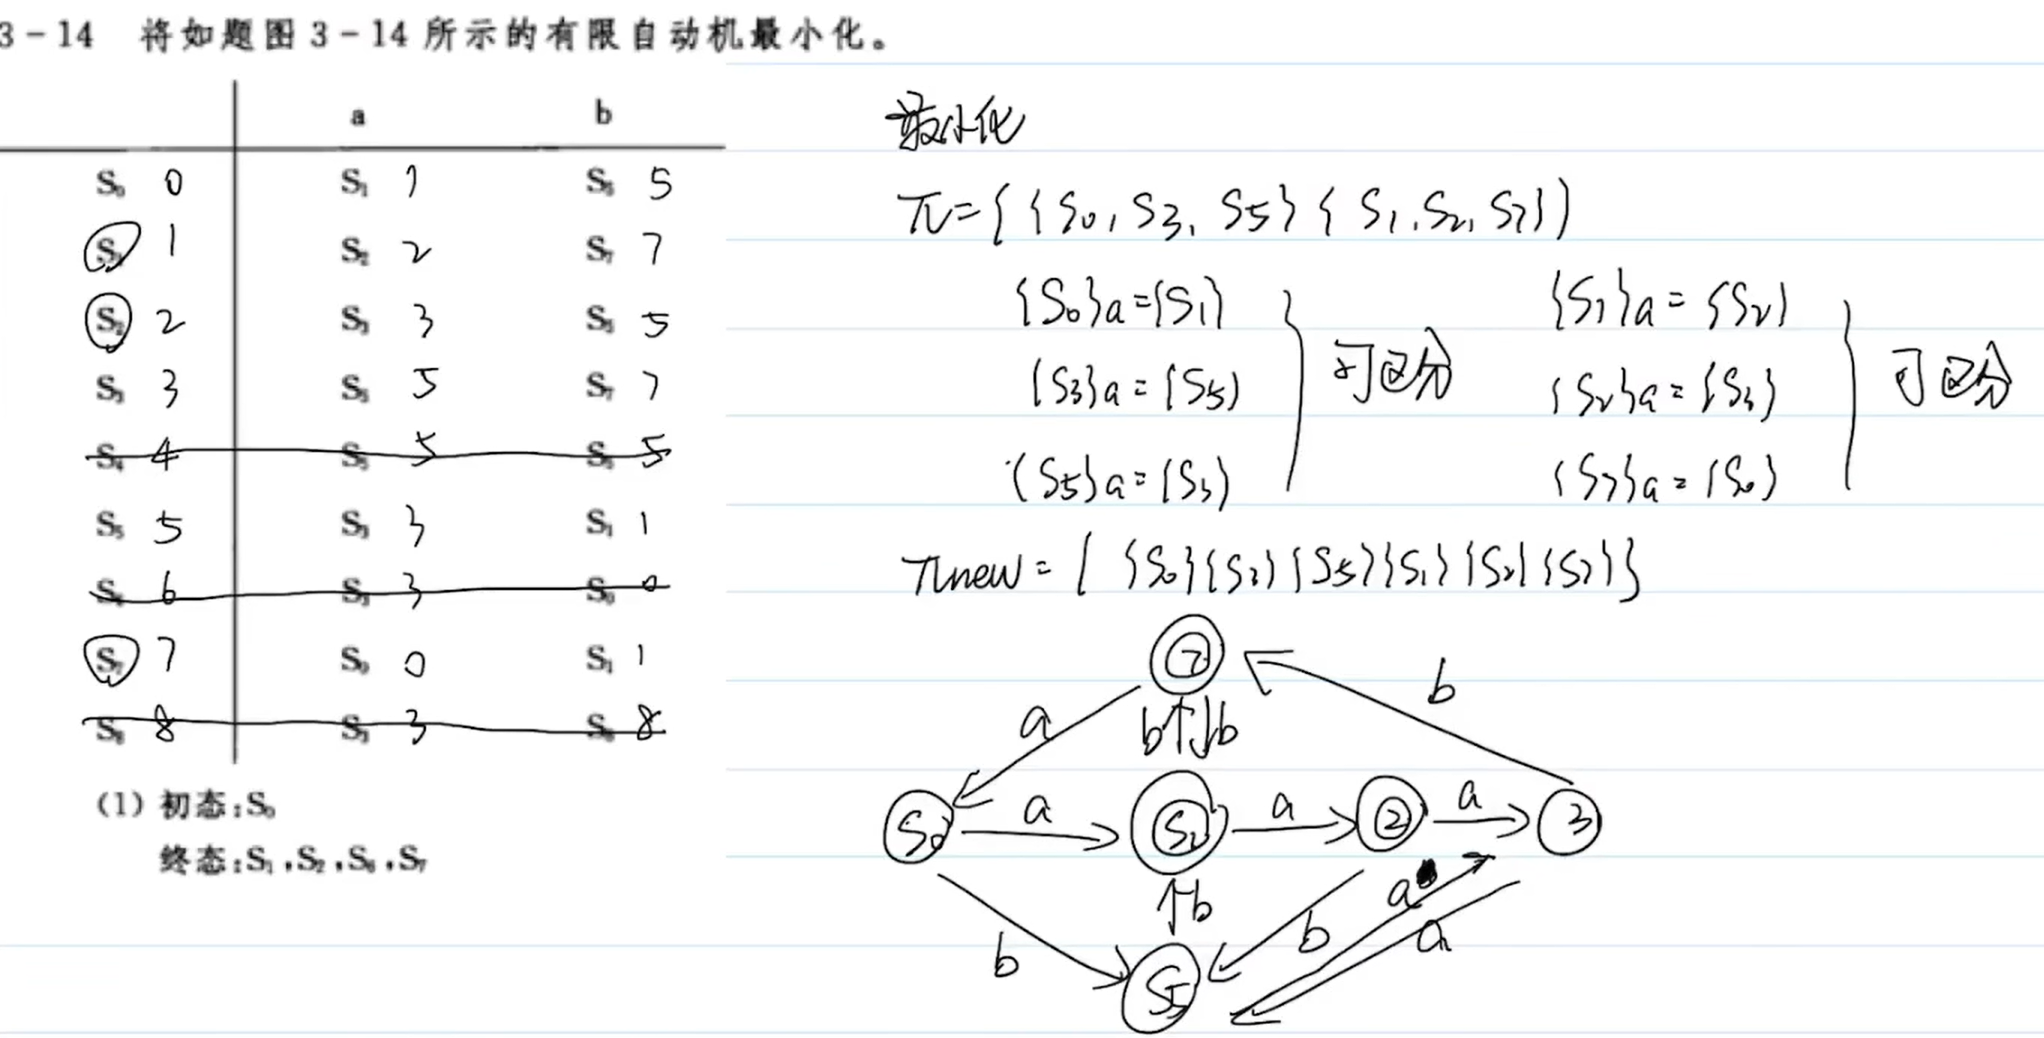 3-14 将如题图3-14所示的有限自动机最小化。
a b
S₀ 0 S₁ 1 S₅ 5
S₁ 1 S₂ 2 S₇ 7
S₂ 2 S₃ 3 S₅ 5
S₃ 3 S₅ 5 S₇ 7
S₄ 4 S₅ 5 5
S₅ 5 S₃ 3 S₁ 1
6 S₃ 3 S₀ 0
S₇ 7 S₀ 0 S₁ 1
S₈ 8 S₃ 3 8
(1) 初态:S₀
终态:S₁,S₂,S₈,S₇
最小化
π={{S₀, S₃, S₅}{S₁, S₂, S₇}}
{S₀}a={S₁}
{S₃}a={S₅}
{S₅}a={S₃}
可区分
{S₁}a={S₂}
{S₂}a={S₃}
{S₇}a={S₀}
可区分
πnew={{S₀}{S₃}{S₅}{S₁}{S₂}{S₇}}
7
b
a b b
S₀ a S₁ a 2 a 3
b b a
b a
S₅